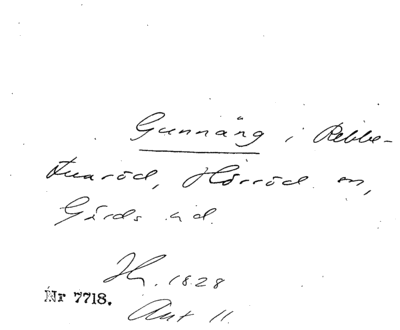 Gunnäng i Rebbe-
tuaröd, Hörröd sn,
Gärds hd.
Hy. 1828
Nr 7718.
Akt 11.